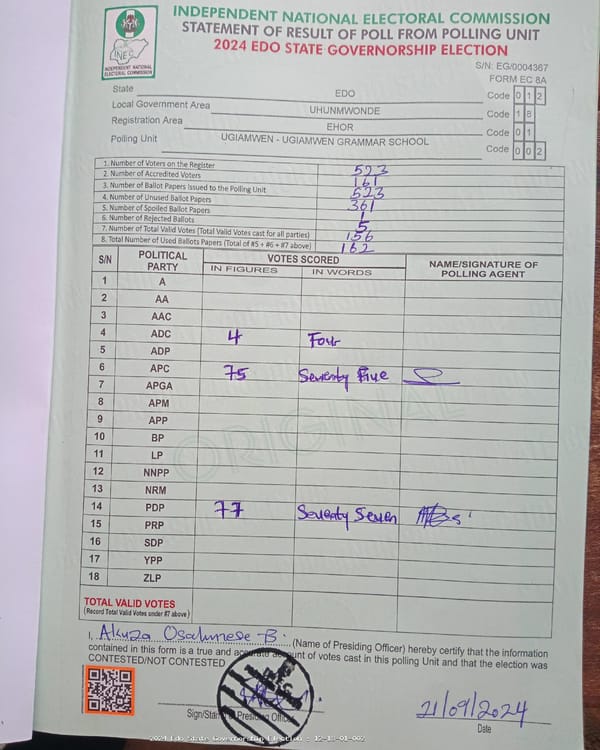 INDEPENDENT NATIONAL ELECTORAL COMMISSION
STATEMENT OF RESULT OF POLL FROM POLLING UNIT
2024 EDO STATE GOVERNORSHIP ELECTION
INEC
INDEPENDENT NATIONAL
ELECTORAL COMMISSION
S/N: EG/0004367
FORM EC 8A
State EDO Code 0 1 2
Local Government Area UHUNMWONDE Code 1 8
Registration Area EHOR Code 0 1
Polling Unit UGIAMWEN - UGIAMWEN GRAMMAR SCHOOL Code 0 0 2
1. Number of Voters on the Register 523
2. Number of Accredited Voters 161
3. Number of Ballot Papers Issued to the Polling Unit 523
4. Number of Unused Ballot Papers 361
5. Number of Spoiled Ballot Papers 1
6. Number of Rejected Ballots 5
7. Number of Total Valid Votes (Total Valid Votes cast for all parties) 156
8. Total Number of Used Ballots Papers (Total of #5 + #6 + #7 above) 162
S/N POLITICAL PARTY VOTES SCORED NAME/SIGNATURE OF POLLING AGENT
IN FIGURES IN WORDS
1 A
2 AA
3 AAC
4 ADC 4 Four
5 ADP
6 APC 75 Seventy Five
7 APGA
8 APM
9 APP
10 BP
11 LP
12 NNPP
13 NRM
14 PDP 77 Seventy Seven
15 PRP
16 SDP
17 YPP
18 ZLP
ORIGINAL
TOTAL VALID VOTES
(Record Total Valid Votes under #7 above)
I, (Name of Presiding Officer) hereby certify that the information
contained in this form is a true and accurate account of votes cast in this polling Unit and that the election was
CONTESTED/NOT CONTESTED
Sign/Stamp Presiding Officer
21/09/2024
Date
2024 Edo State Governorship Election : 12-18-01-002